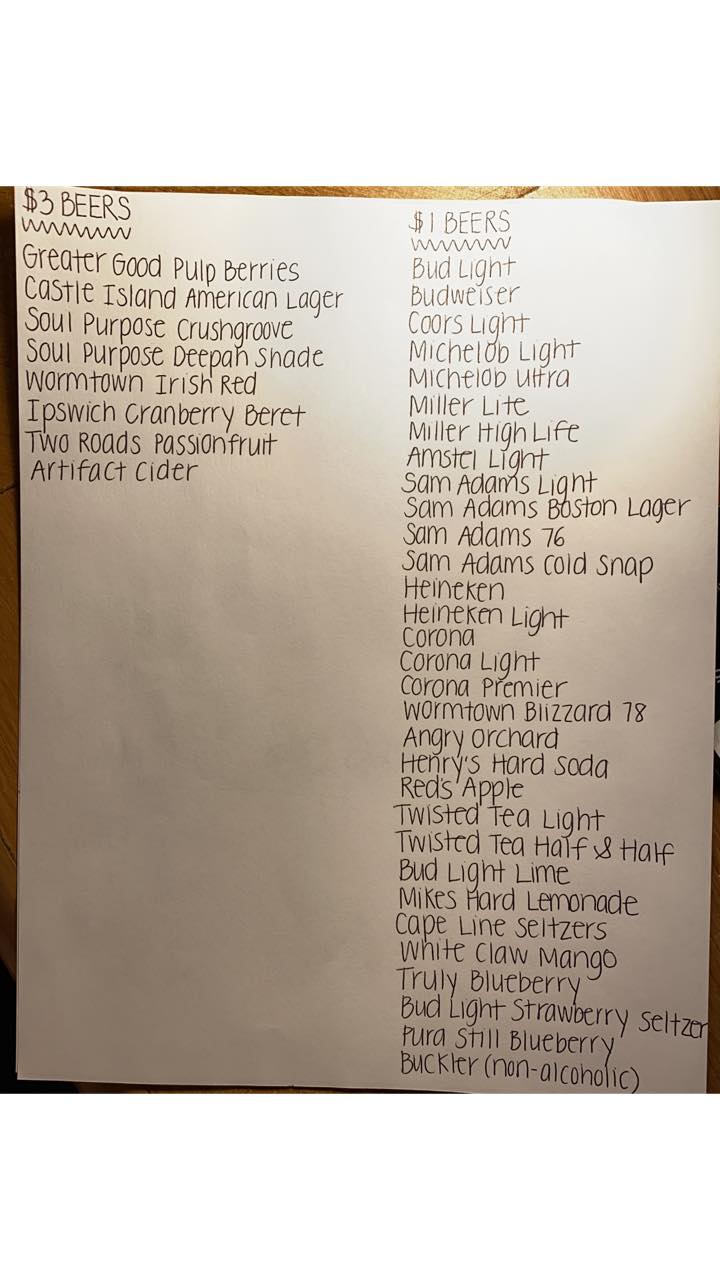 $3 BEERS
Greater Good Pulp Berries
Castle Island American Lager
Soul Purpose Crushgroove
Soul Purpose Deepah Shade
Wormtown Irish Red
Ipswich Cranberry Beret
Two Roads Passionfruit
Artifact Cider
$1 BEERS
Bud Light
Budweiser
Coors Light
Michelob Light
Michelob Ultra
Miller Lite
Miller High Life
Amstel Light
Sam Adams Light
Sam Adams Boston Lager
Sam Adams 76
Sam Adams Cold Snap
Heineken
Heineken Light
Corona
Corona Light
Corona Premier
Wormtown Blizzard 78
Angry Orchard
Henry's Hard Soda
Red's Apple
Twisted Tea Light
Twisted Tea Half & Half
Bud Light Lime
Mikes Hard Lemonade
Cape Line Seltzers
White Claw Mango
Truly Blueberry
Bud Light Strawberry Seltzer
Pura Still Blueberry
Buckler (non-alcoholic)